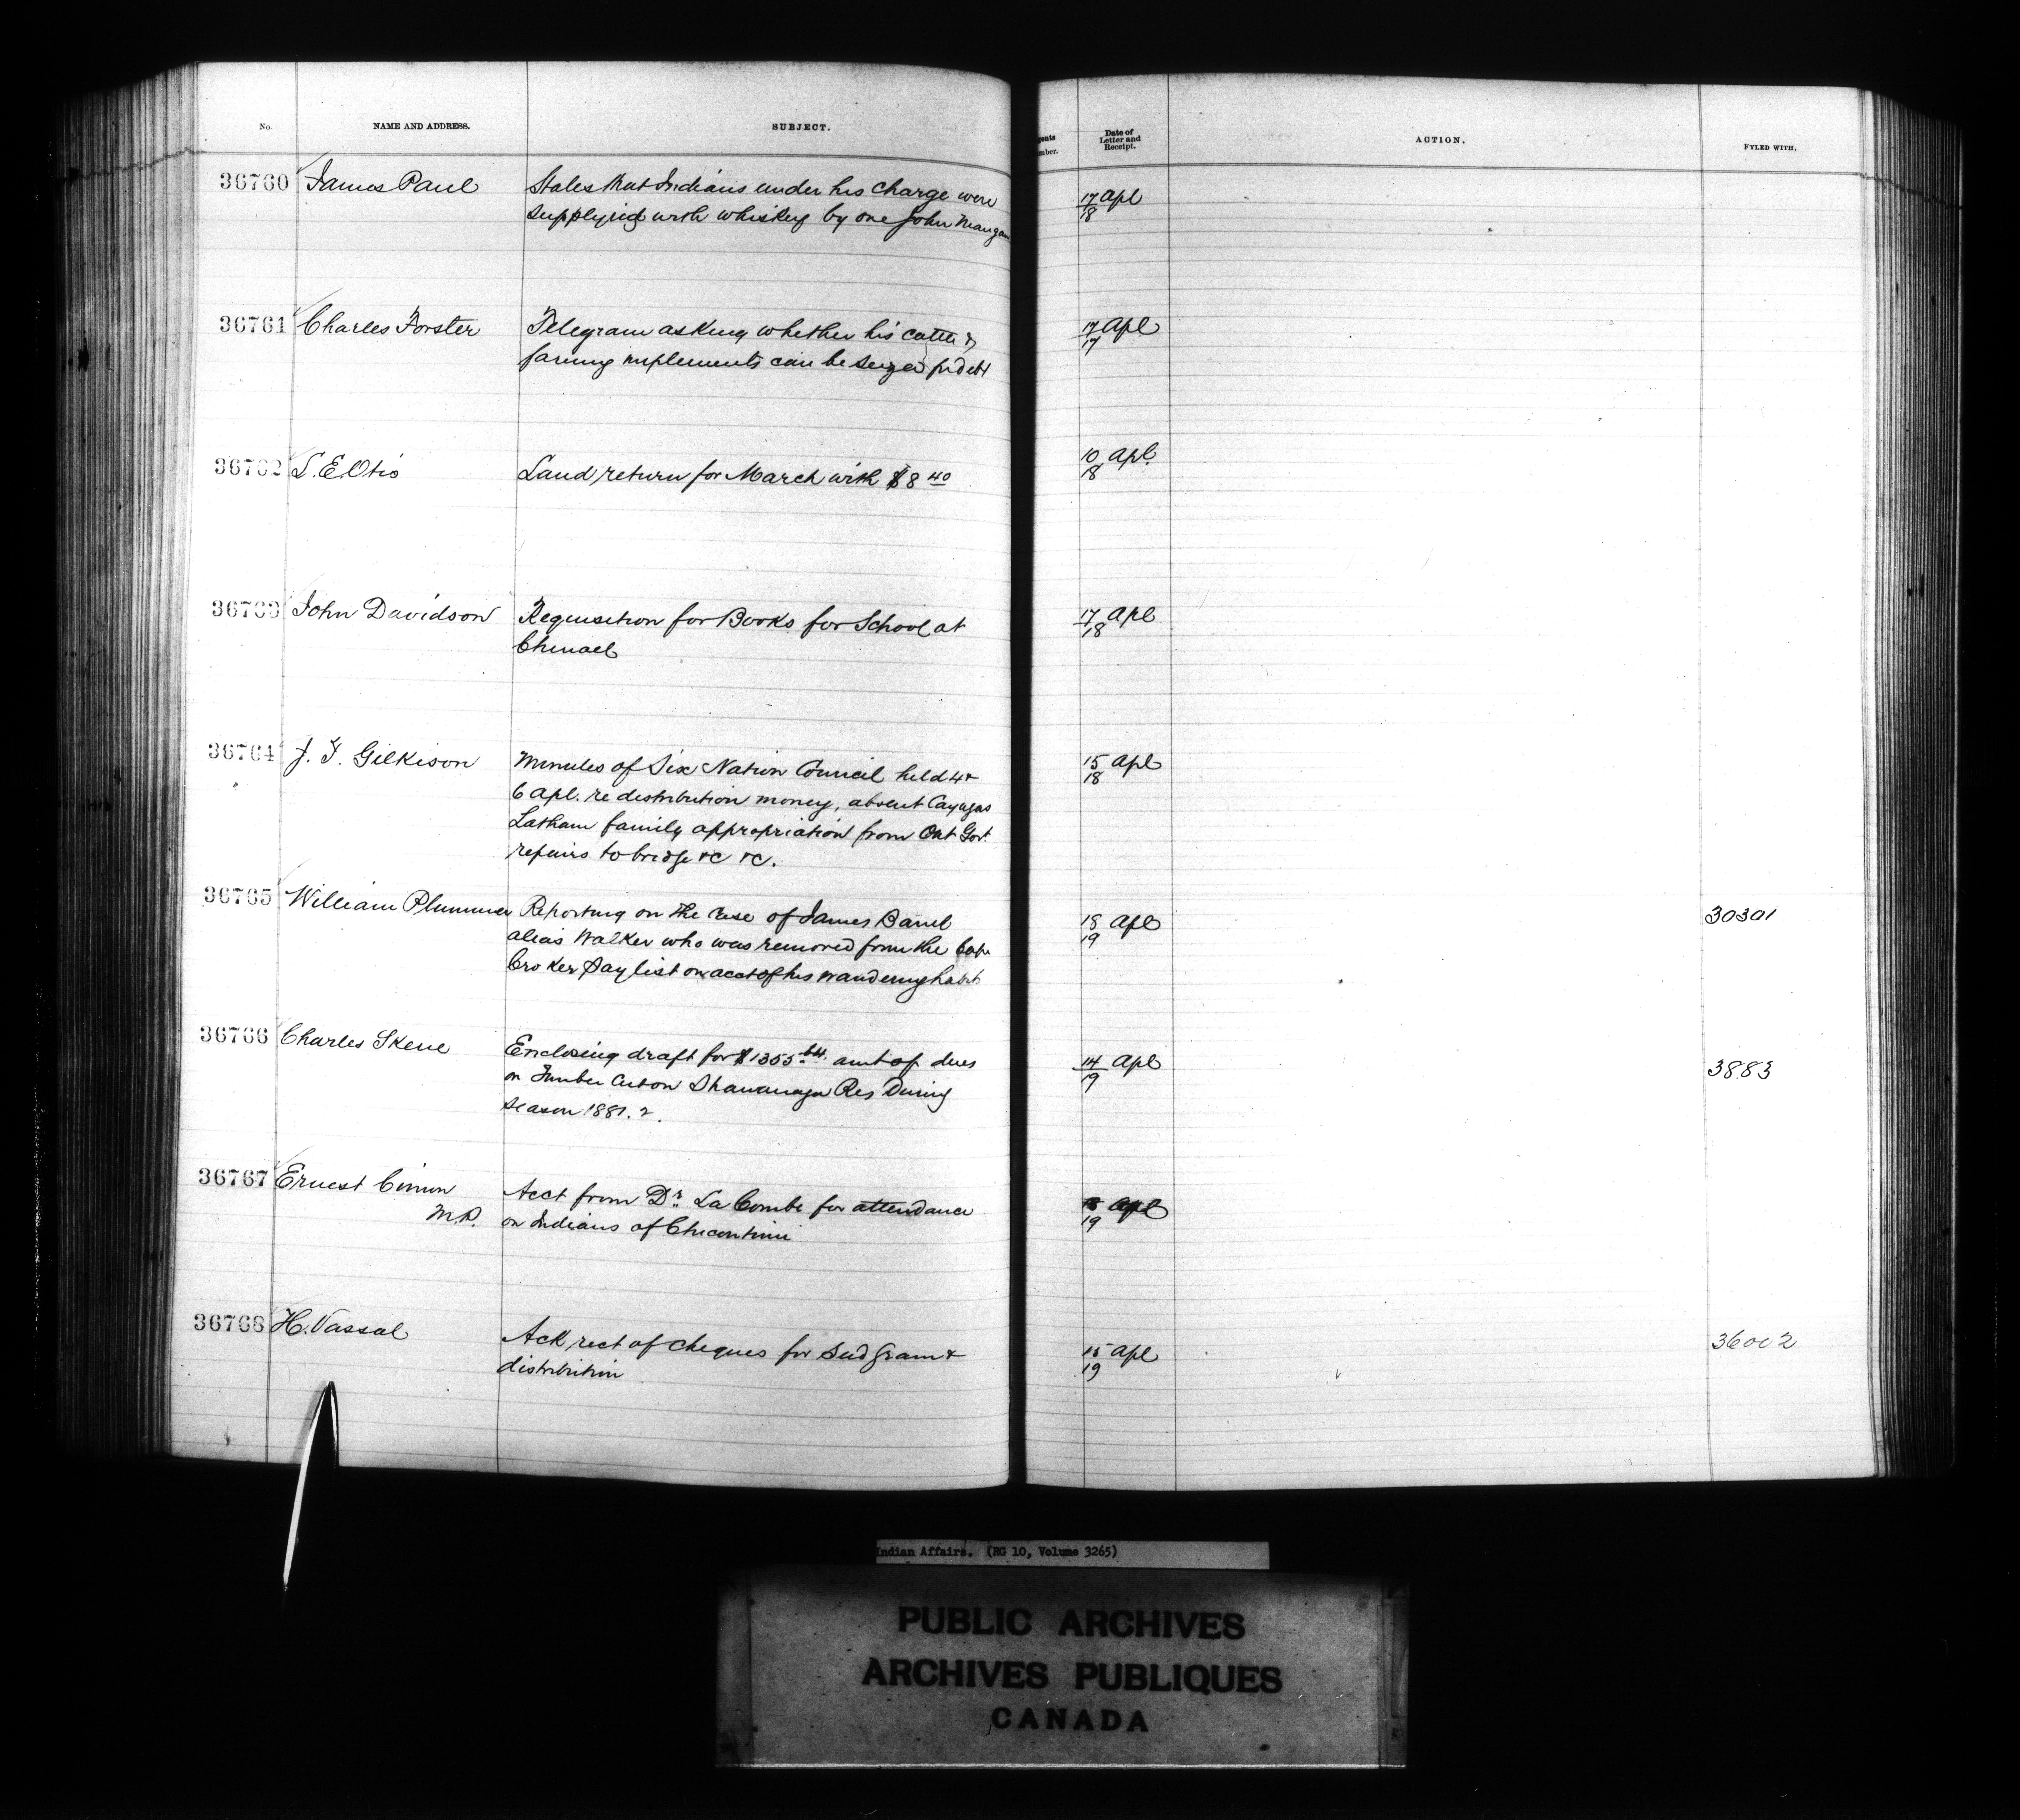 No. NAME AND ADDRESS. SUBJECT. gents mber. Date of Letter and Receipt. ACTION. FYLED WITH.
36760 James Paul States that Indians under his charge were 17 Apl
supplying with whiskey by one John Mangan 18
36761 Charles Forster Telegram asking whether his cattle & 17 Apl
farming implements can be seized for debt 17
36762 L. E. Otis Land return for March with $8 40 10 Apl.
18
36763 John Davidson Requisition for Books for School at 17 Apl
18
36764 J. T. Gilkison Minutes of Six Nation Council held 4 & 15 Apl
6 Apl. re distribution money, absent Cayugas 18
Latham family appropriation from Ont Govt.
repairs to bridge &c &c.
36765 William Plummer Reporting on the case of James 18 Apl 30301
alias Walker who was removed from the Cape 19
Croker Pay list on acct of his wandering habits
36766 Charles Skene Enclosing draft for $1355.64. amt of dues 14 Apl 3883
on Timber cut on Shawanaga Res During 19
Season 1881.2.
36767 Ernest Cimon Acct from Dr. La Combe for attendance Apl
M.P. on Indians of Chicoutimi 19
36768 H. Vassal Ack rect of cheques for Seed Grain & 15 Apl 36002
distribution 19
Indian Affairs. (RG 10, Volume 3265)
PUBLIC ARCHIVES
ARCHIVES PUBLIQUES
CANADA